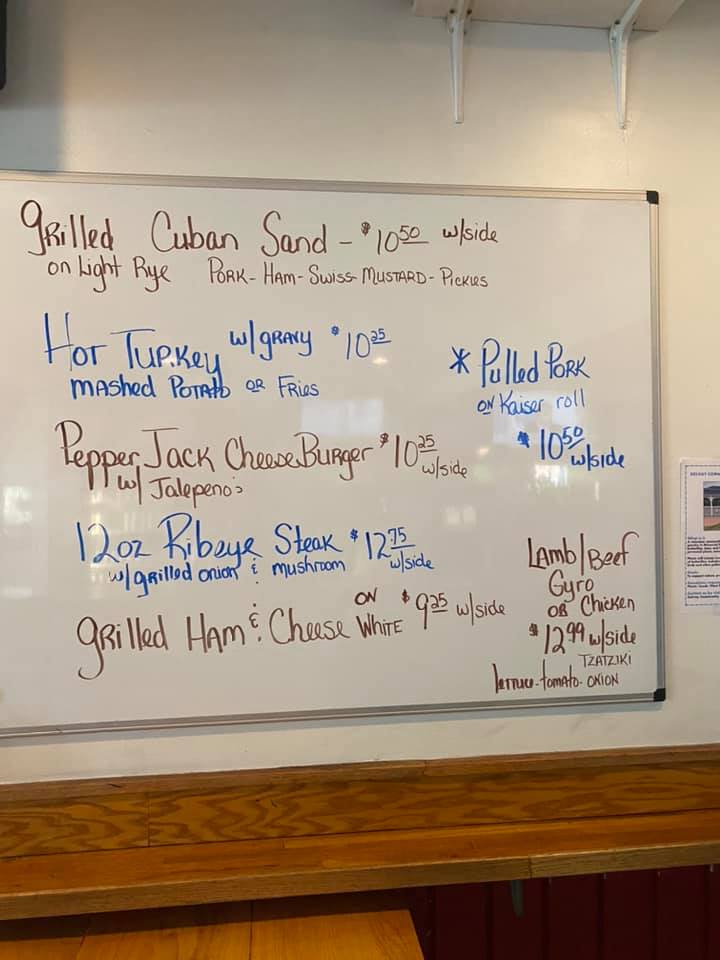 Grilled Cuban Sand - $10.50 w/side
on Light Rye Pork - Ham - Swiss - Mustard - Pickles
Hot Turkey w/gravy $10.25
Mashed Potato or Fries
Pepper Jack CheeseBurger $10.25 w/side
w/ Jalepeno's
12oz Ribeye Steak $12.75 w/side
w/grilled onion & mushroom
Grilled Ham & Cheese on White $9.25 w/side
* Pulled Pork
on Kaiser roll
$10.50 w/side
Lamb/Beef
Gyro
or Chicken
$12.99 w/side
Tzatziki
lettuce - tomato - onion